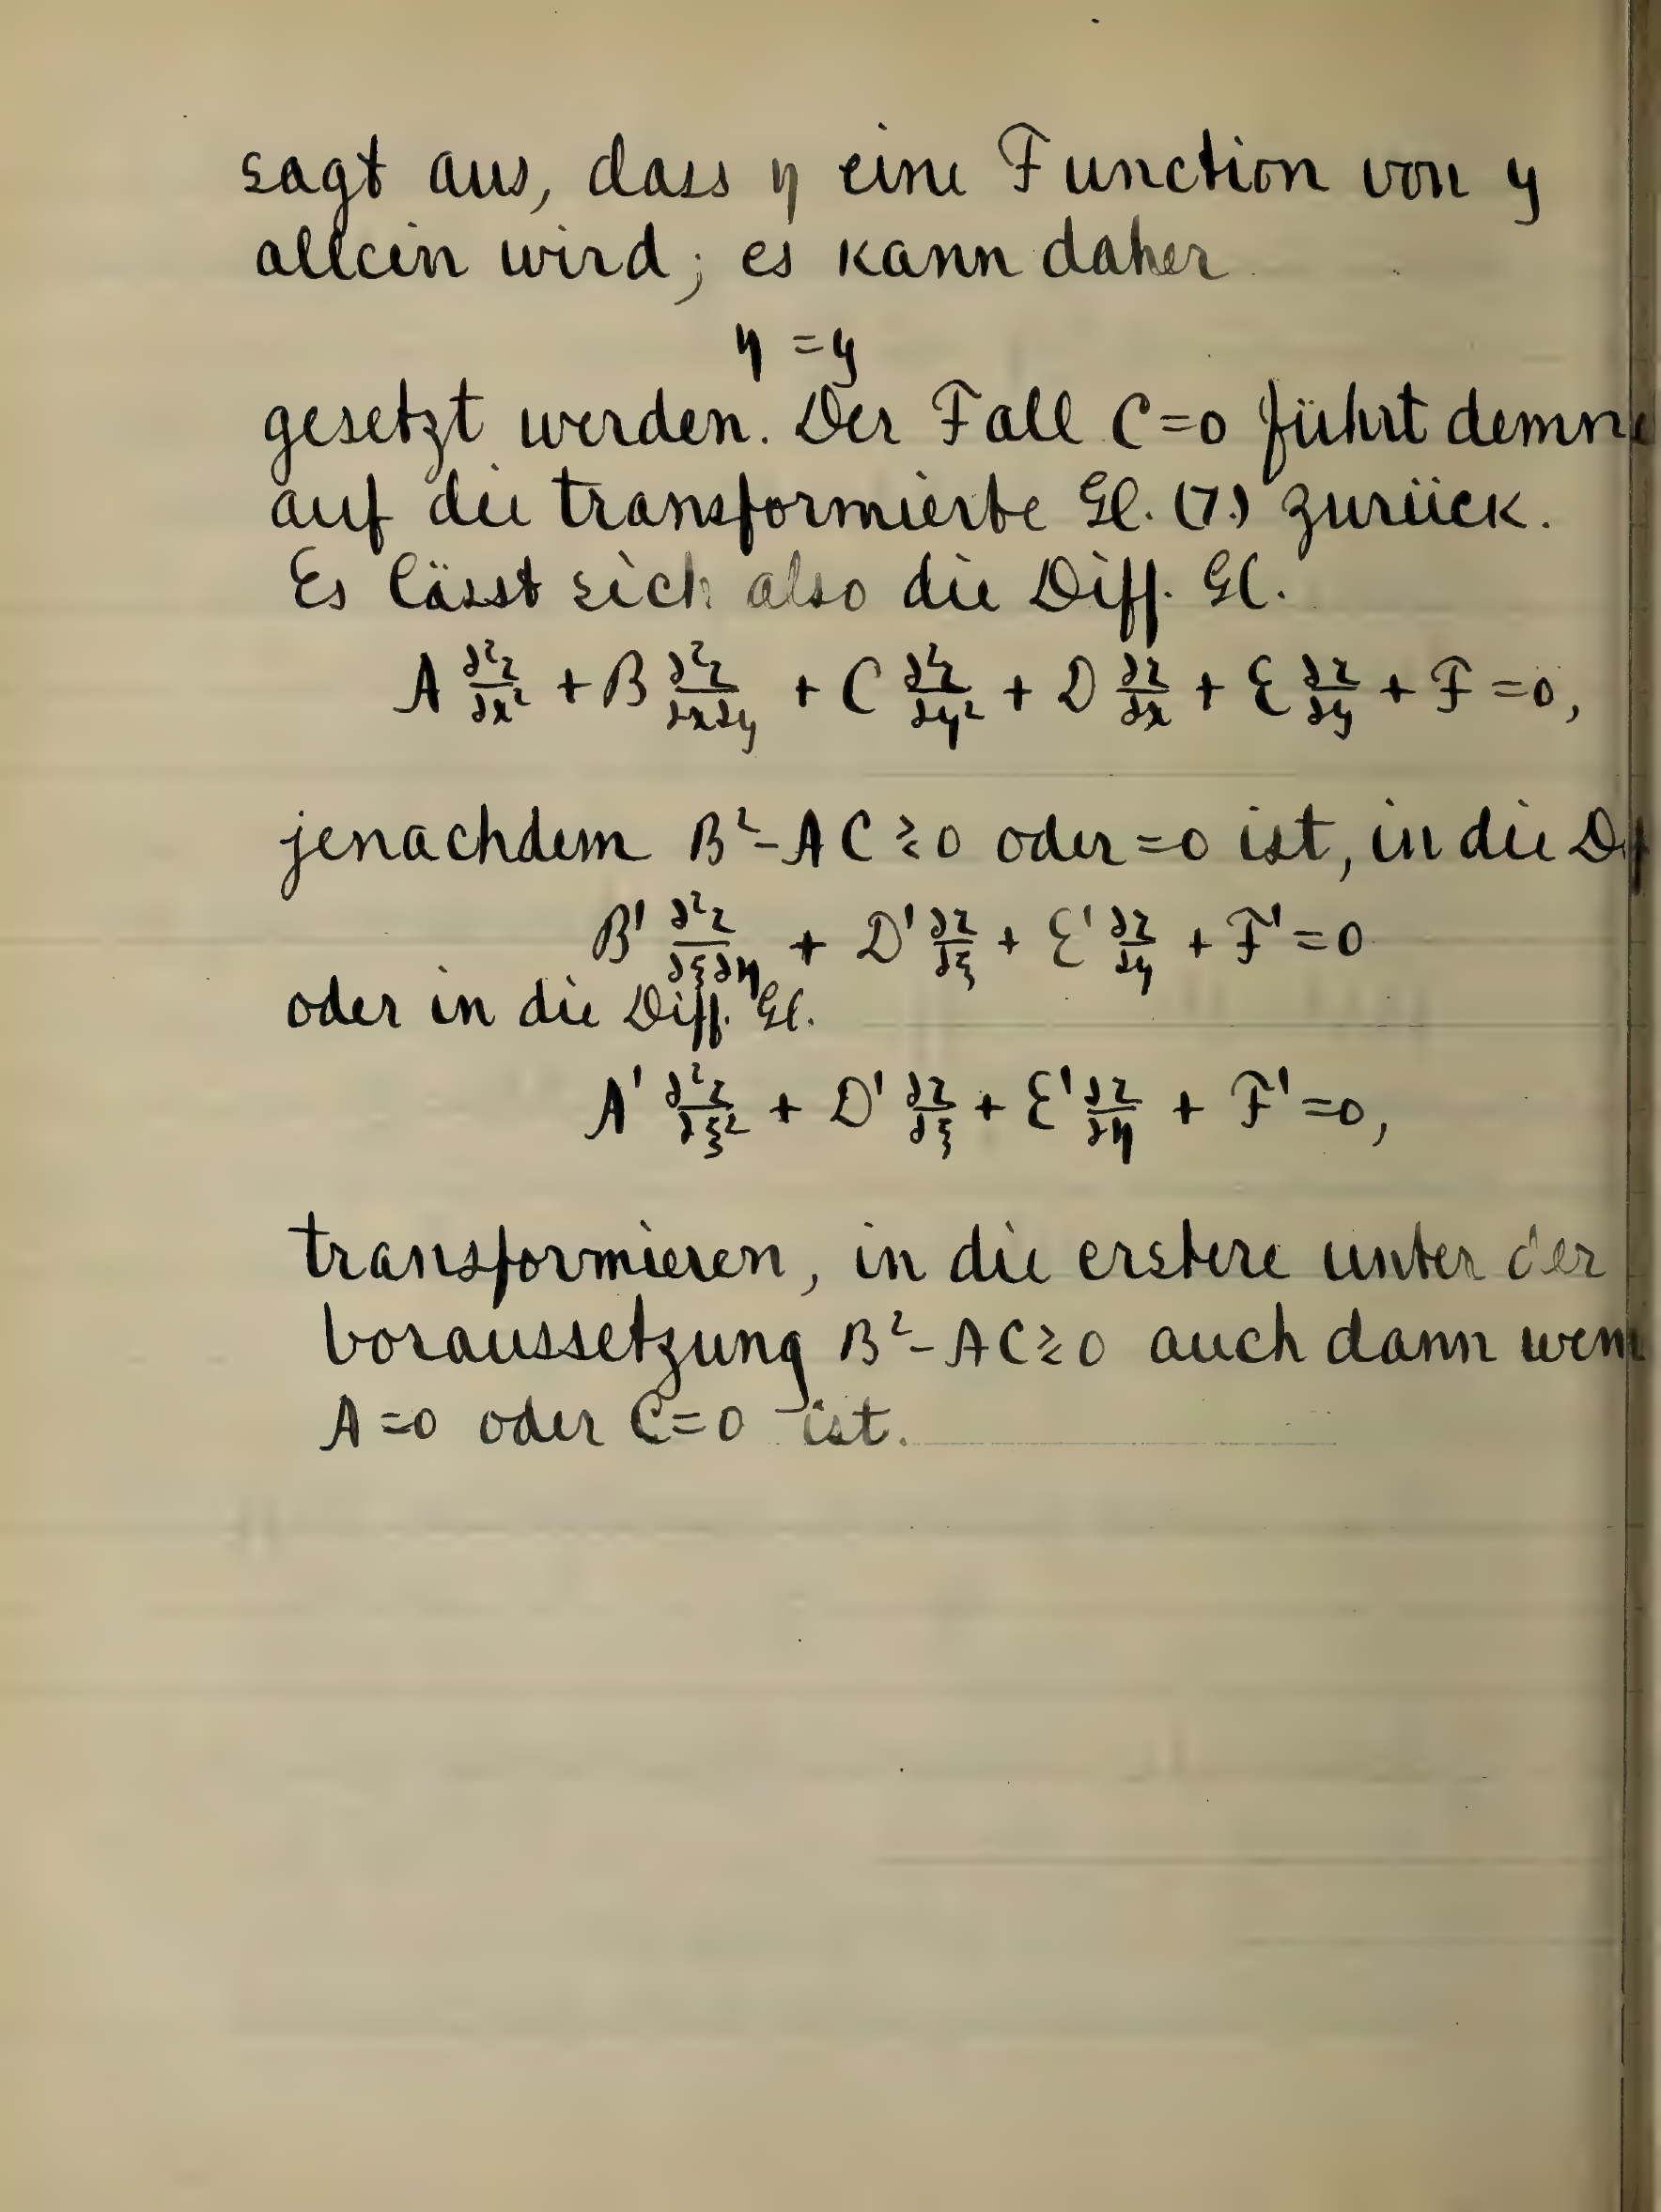 sagt aus, dass η eine Function von y
allein wird; es kann daher
η = y
gesetzt werden. Der Fall C=0 führt demn
auf die transformierte Gl. (7.) zurück.
Es lässt sich also die Diff. Gl.
A ∂²z/∂x² + B ∂²z/∂x∂y + C ∂²z/∂y² + D ∂z/∂x + E ∂z/∂y + F = 0,
jenachdem B²-AC ≷ 0 oder = 0 ist, in die D
B' ∂²z/∂ξ∂η + D' ∂z/∂ξ + E' ∂z/∂η + F' = 0
oder in die Diff. Gl.
A' ∂²z/∂ξ² + D' ∂z/∂ξ + E' ∂z/∂η + F' = 0,
transformieren, in die erstere unter der
Voraussetzung B²-AC ≷ 0 auch dann wenn
A=0 oder C=0 ist.